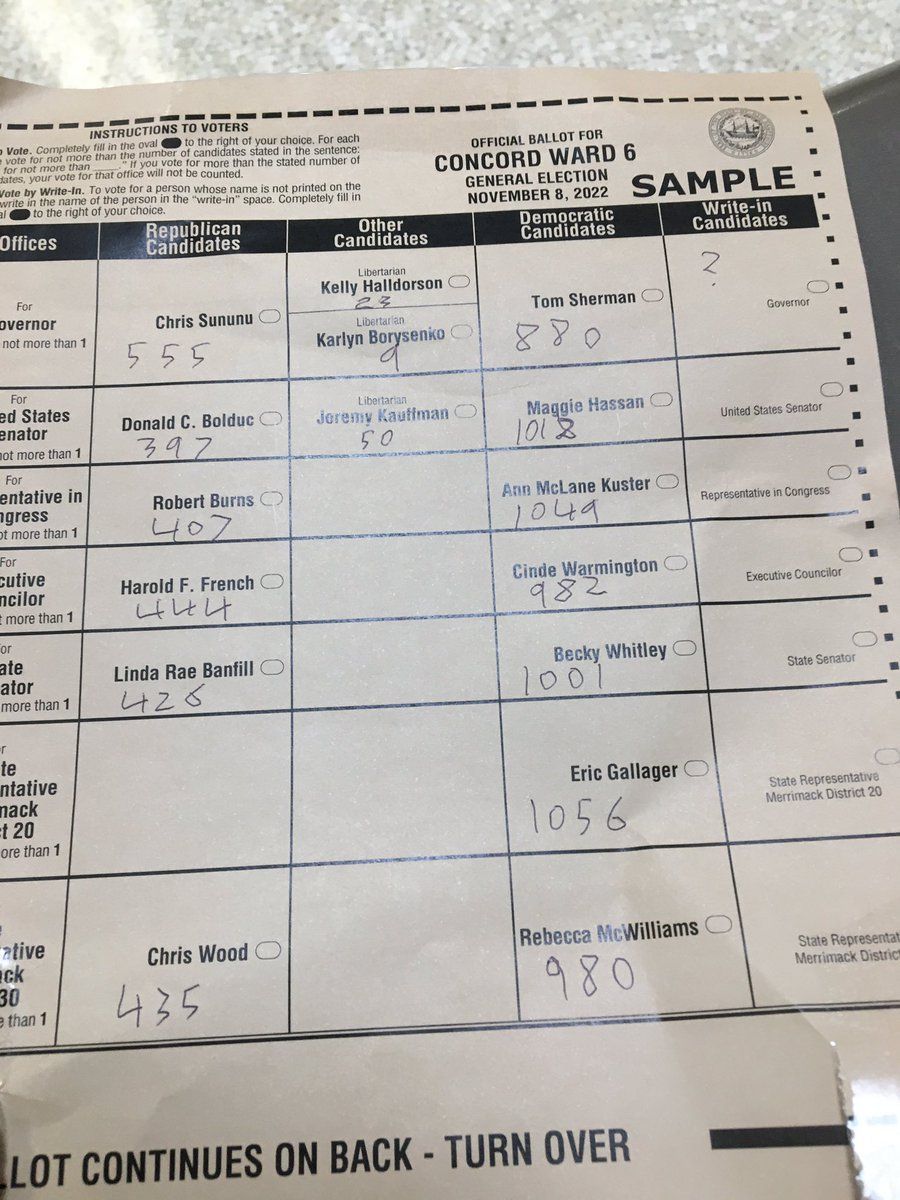 INSTRUCTIONS TO VOTERS
Vote. Completely fill in the oval to the right of your choice. For each
vote for not more than the number of candidates stated in the sentence:
for not more than ____." If you vote for more than the stated number of
dates, your vote for that office will not be counted.
Vote by Write-In. To vote for a person whose name is not printed on the
write in the name of the person in the "write-in" space. Completely fill in
al to the right of your choice.
OFFICIAL BALLOT FOR
CONCORD WARD 6
GENERAL ELECTION
NOVEMBER 8, 2022
SAMPLE
Offices
Republican
Candidates
Other
Candidates
Democratic
Candidates
Write-in
Candidates
For
overnor
not more than 1
Chris Sununu
555
Libertarian
Kelly Halldorson
23
Libertarian
Karlyn Borysenko
9
Tom Sherman
880
?
Governor
For
ed States
enator
not more than 1
Donald C. Bolduc
397
Libertarian
Jeremy Kauffman
50
Maggie Hassan
1018
United States Senator
For
entative in
ngress
ot more than 1
Robert Burns
407
Ann McLane Kuster
1049
Representative in Congress
For
cutive
ncilor
t more than 1
Harold F. French
444
Cinde Warmington
982
Executive Councilor
or
ate
ator
more than 1
Linda Rae Banfill
426
Becky Whitley
1001
State Senator
r
te
ntative
mack
t 20
ore than 1
Eric Gallager
1056
State Representative
Merrimack District 20
ative
ack
30
e than 1
Chris Wood
435
Rebecca McWilliams
980
State Representat
Merrimack District
LLOT CONTINUES ON BACK - TURN OVER